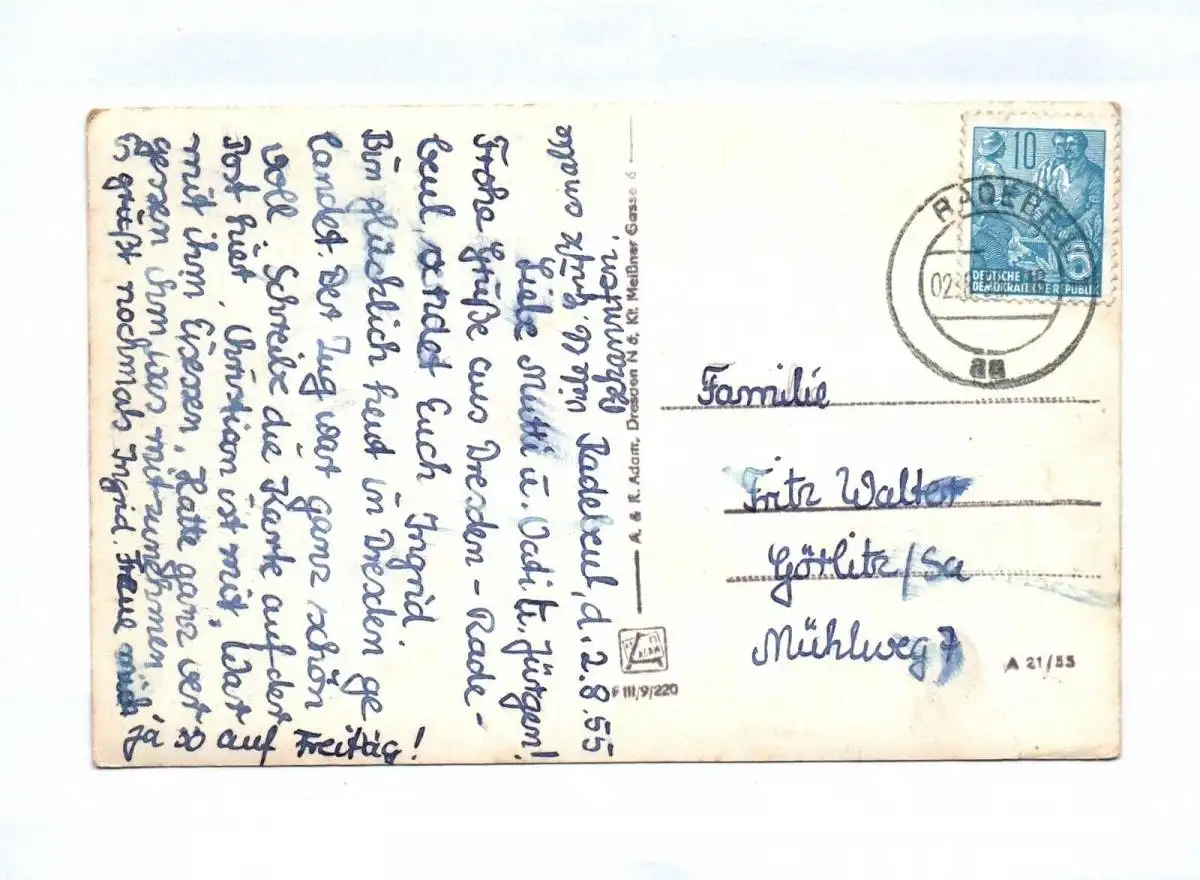 Radebeul, d. 2.8.55
Liebe Mutti u. Vati u. Jürgen!
Frohe Grüße aus Dresden-Rade-
beul, sendet Euch Ingrid
Bin glücklich heut in Dresden ge
landet. Der Zug war ganz schön
voll. Schreibe die Karte auf der
Post hier. Christian ist mit. War
mit ihm Eisessen. Hatte ganz ver
gessen ihm was mitzunehmen
Es grüßt nochmals Ingrid. Freue mich
ja so auf Freitag!
Bekannten,
A. & R. Adam, Dresden N 6, Kl. Meißner Gasse 6
F III/9/220
10
DEUTSCHE
DEMOKRATISCHE REPUBLIK
RADEBEUL
aa
Familie
Fritz Walter
Görlitz/Sa
Mühlweg 7
A 21/55